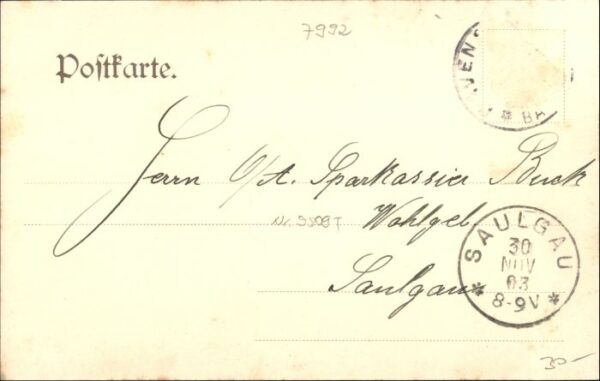 7992
Postkarte.
* BR
Herrn O/A. Sparkassier Buck
Wohlgeb.
Saulgau
SAULGAU
30
NOV
03
* 8-9V *
30-